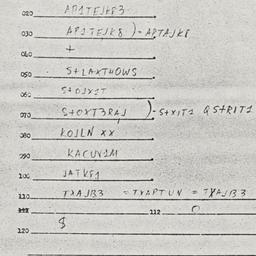 020 AP1TEJK83
030 AP1TEJK8 )- APTAJK8
040 +
050 S+LAXTHOWS
060 S+OJX1T
070 S+OXT3RAJ )- S+XIT1 & S+RIT1
080 KOJLN XX
090 KACUV1M
100 JATK81
110 TXAJB3 = TXAPTUN = TXAJB3
111 112 O
120 $